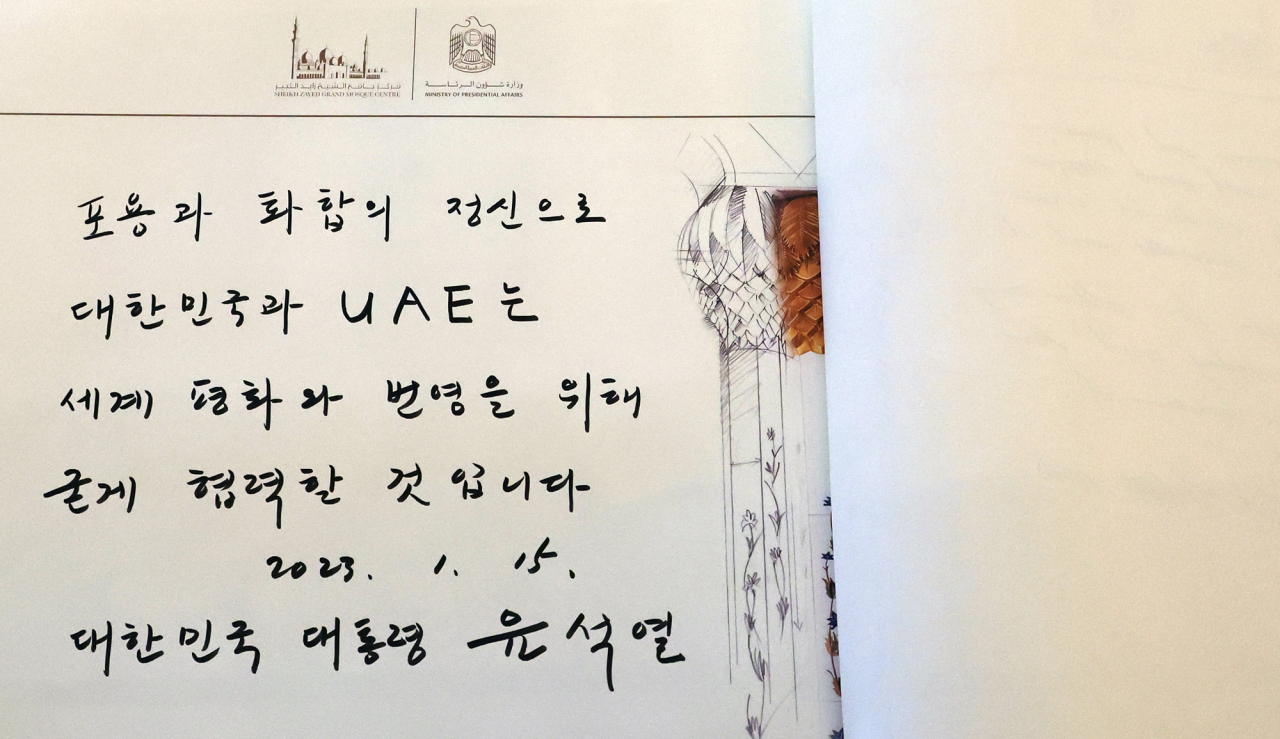 مركز جامع الشيخ زايد الكبير
SHEIKH ZAYED GRAND MOSQUE CENTRE
وزارة شؤون الرئاسة
MINISTRY OF PRESIDENTIAL AFFAIRS
포용과 화합의 정신으로
대한민국과 UAE는
세계 평화와 번영을 위해
굳게 협력할 것입니다
2023. 1. 15.
대한민국 대통령 윤석열